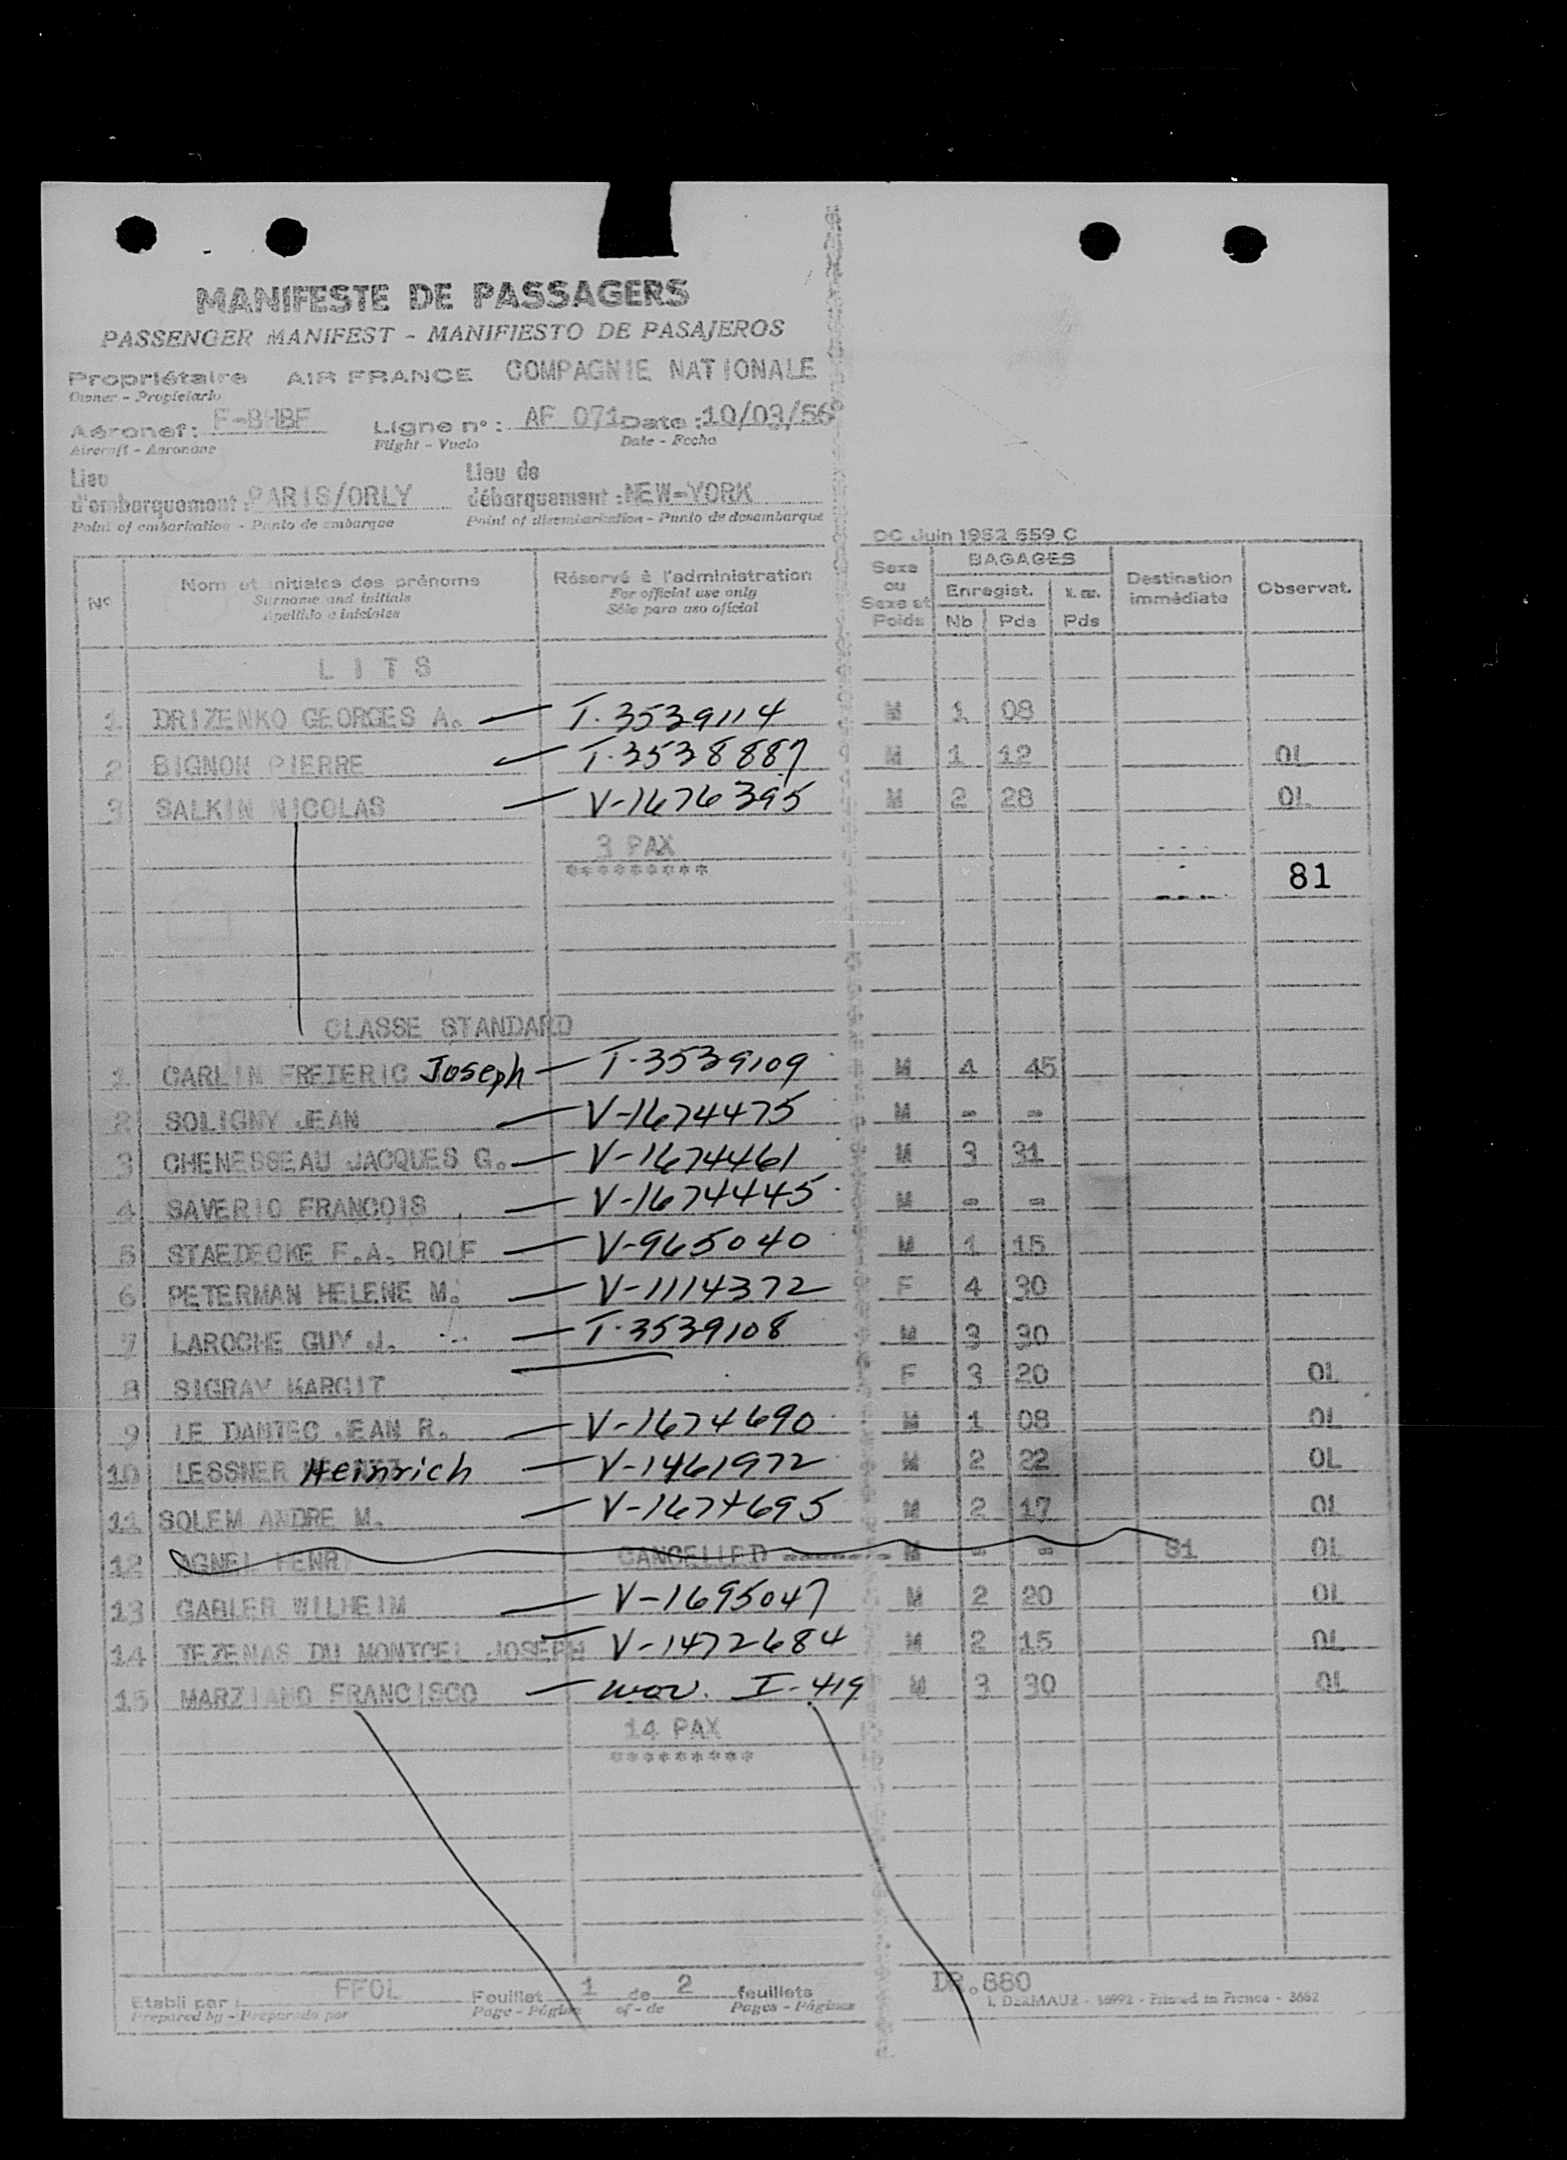 MANIFESTE DE PASSAGERS
PASSENGER MANIFEST - MANIFIESTO DE PASAJEROS
Propriétaire AIR FRANCE COMPAGNIE NATIONALE
Owner - Propietario
Aéronef: F-BHBF Ligne n°: AF 071 Date: 10/03/56
Aircraft - Aeronave Flight - Vuelo Date - Fecha
Lieu d'embarquement: PARIS/ORLY Lieu de débarquement: NEW-YORK
Point of embarkation - Punto de embarque Point of disembarkation - Punto de desembarque
OC Juin 1952 659 C
N° Nom et initiales des prénoms Réservé à l'administration Sexe ou Sexe et Poids BAGAGES Destination immédiate Observat.
Surname and initials For official use only Enregist.
Apellido e iniciales Sólo para uso oficial Nb Pds Pds
LITS
1 DRIZENKO GEORGES A. — T.3539114 M 1 08
2 BIGNON PIERRE — T.3538887 M 1 12 OL
3 SALKIN NICOLAS — V-1676395 M 2 28 OL
3 PAX
*********
81
CLASSE STANDARD
1 CARLIN FREDERIC Joseph — T.3539109 M 4 45
2 SOLIGNY JEAN — V-1674475 M - -
3 CHENESSEAU JACQUES G. — V-1674461 M 3 31
4 SAVERIO FRANCOIS — V-1674445 M - -
5 STAEDECKE F.A. ROLF — V-965040 M 1 15
6 PETERMAN HELENE M. — V-1114372 F 4 30
7 LAROCHE GUY J. — T.3539108 M 3 30
8 SIGRAY MARGIT — F 3 20 OL
9 LE DANTEC JEAN R. — V-1674690 M 1 08 OL
10 LESSNER Heinrich — V-1461972 M 2 22 OL
11 SOLEM ANDRE M. — V-1674695 M 2 17 OL
12 AGNEL HENRI CANCELLED ------- M - - 81 OL
13 GABLER WILHEIM — V-1695047 M 2 20 OL
14 TEZENAS DU MONTCEL JOSEPH — V-1472684 M 2 15 OL
15 MARZIANO FRANCISCO — wav. I-419 M 3 30 OL
14 PAX
*********
Etabli par: FFOL Feuillet 1 de 2 feuillets DR.880
Prepared by - Preparado por Page - Página of - de Pages - Páginas